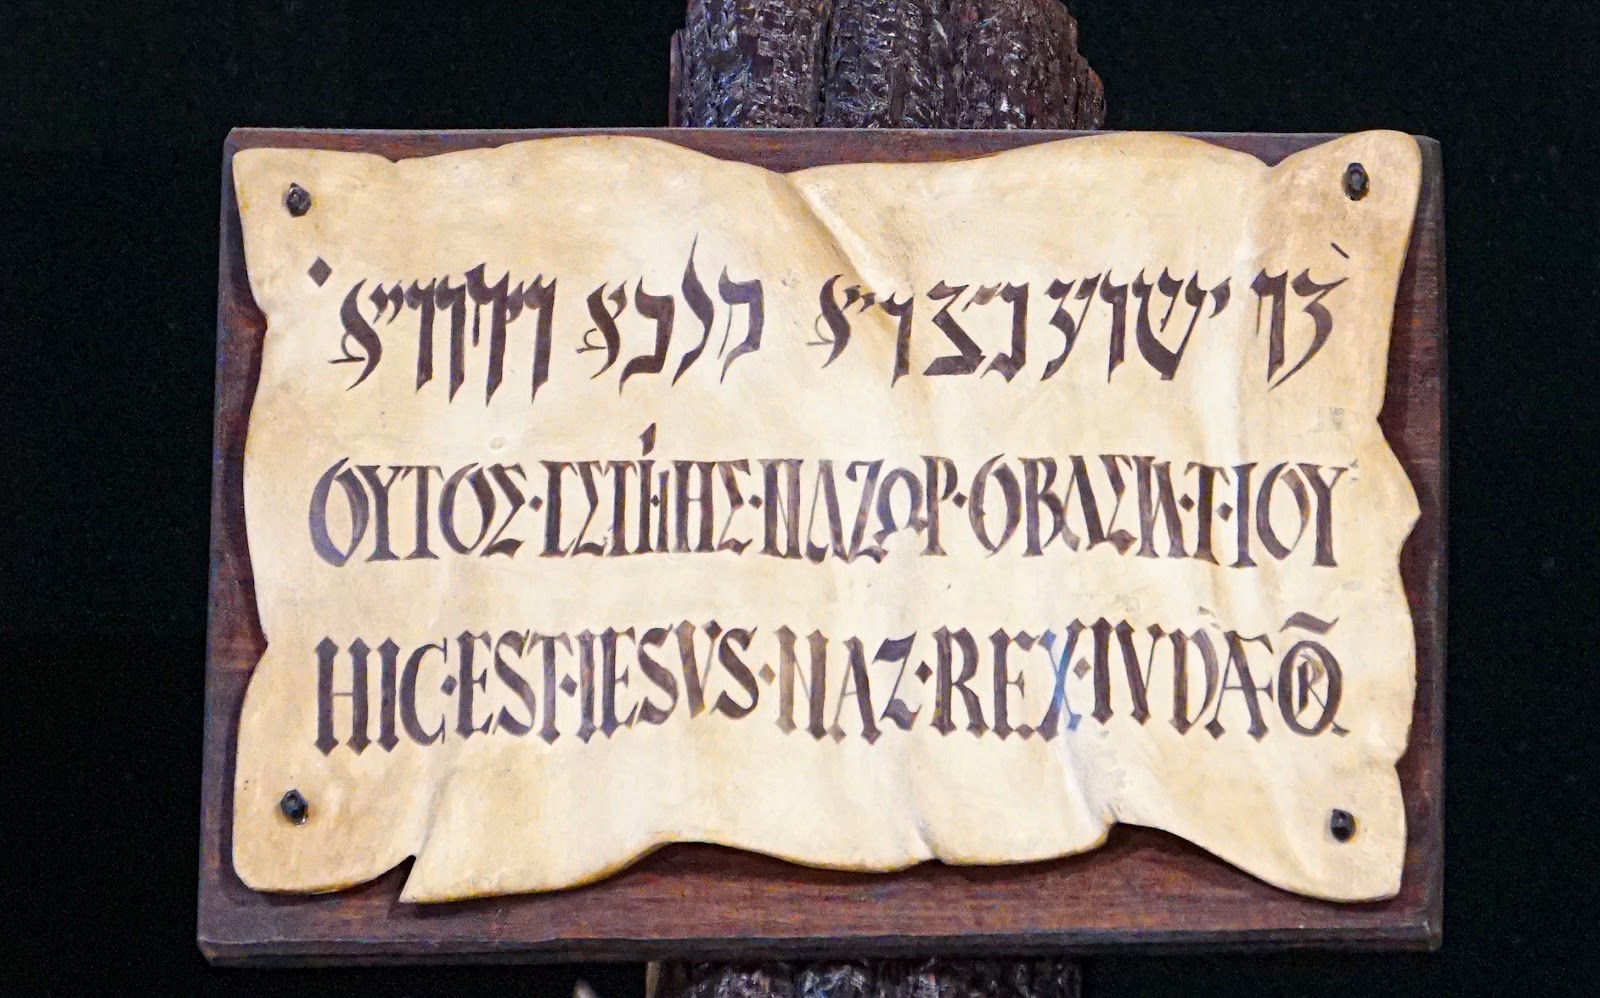 דן ישוע נצריא מלכא דיהודיא
ΟΥΤΟΣ·ΕΣΤΙ·ΙΗΣ·ΝΑΖΩΡ·ΟΒΑΣΙΛ·Τ·ΙΟΥ
HIC·EST·IESVS·NAZ·REX·IVDÆOR̃